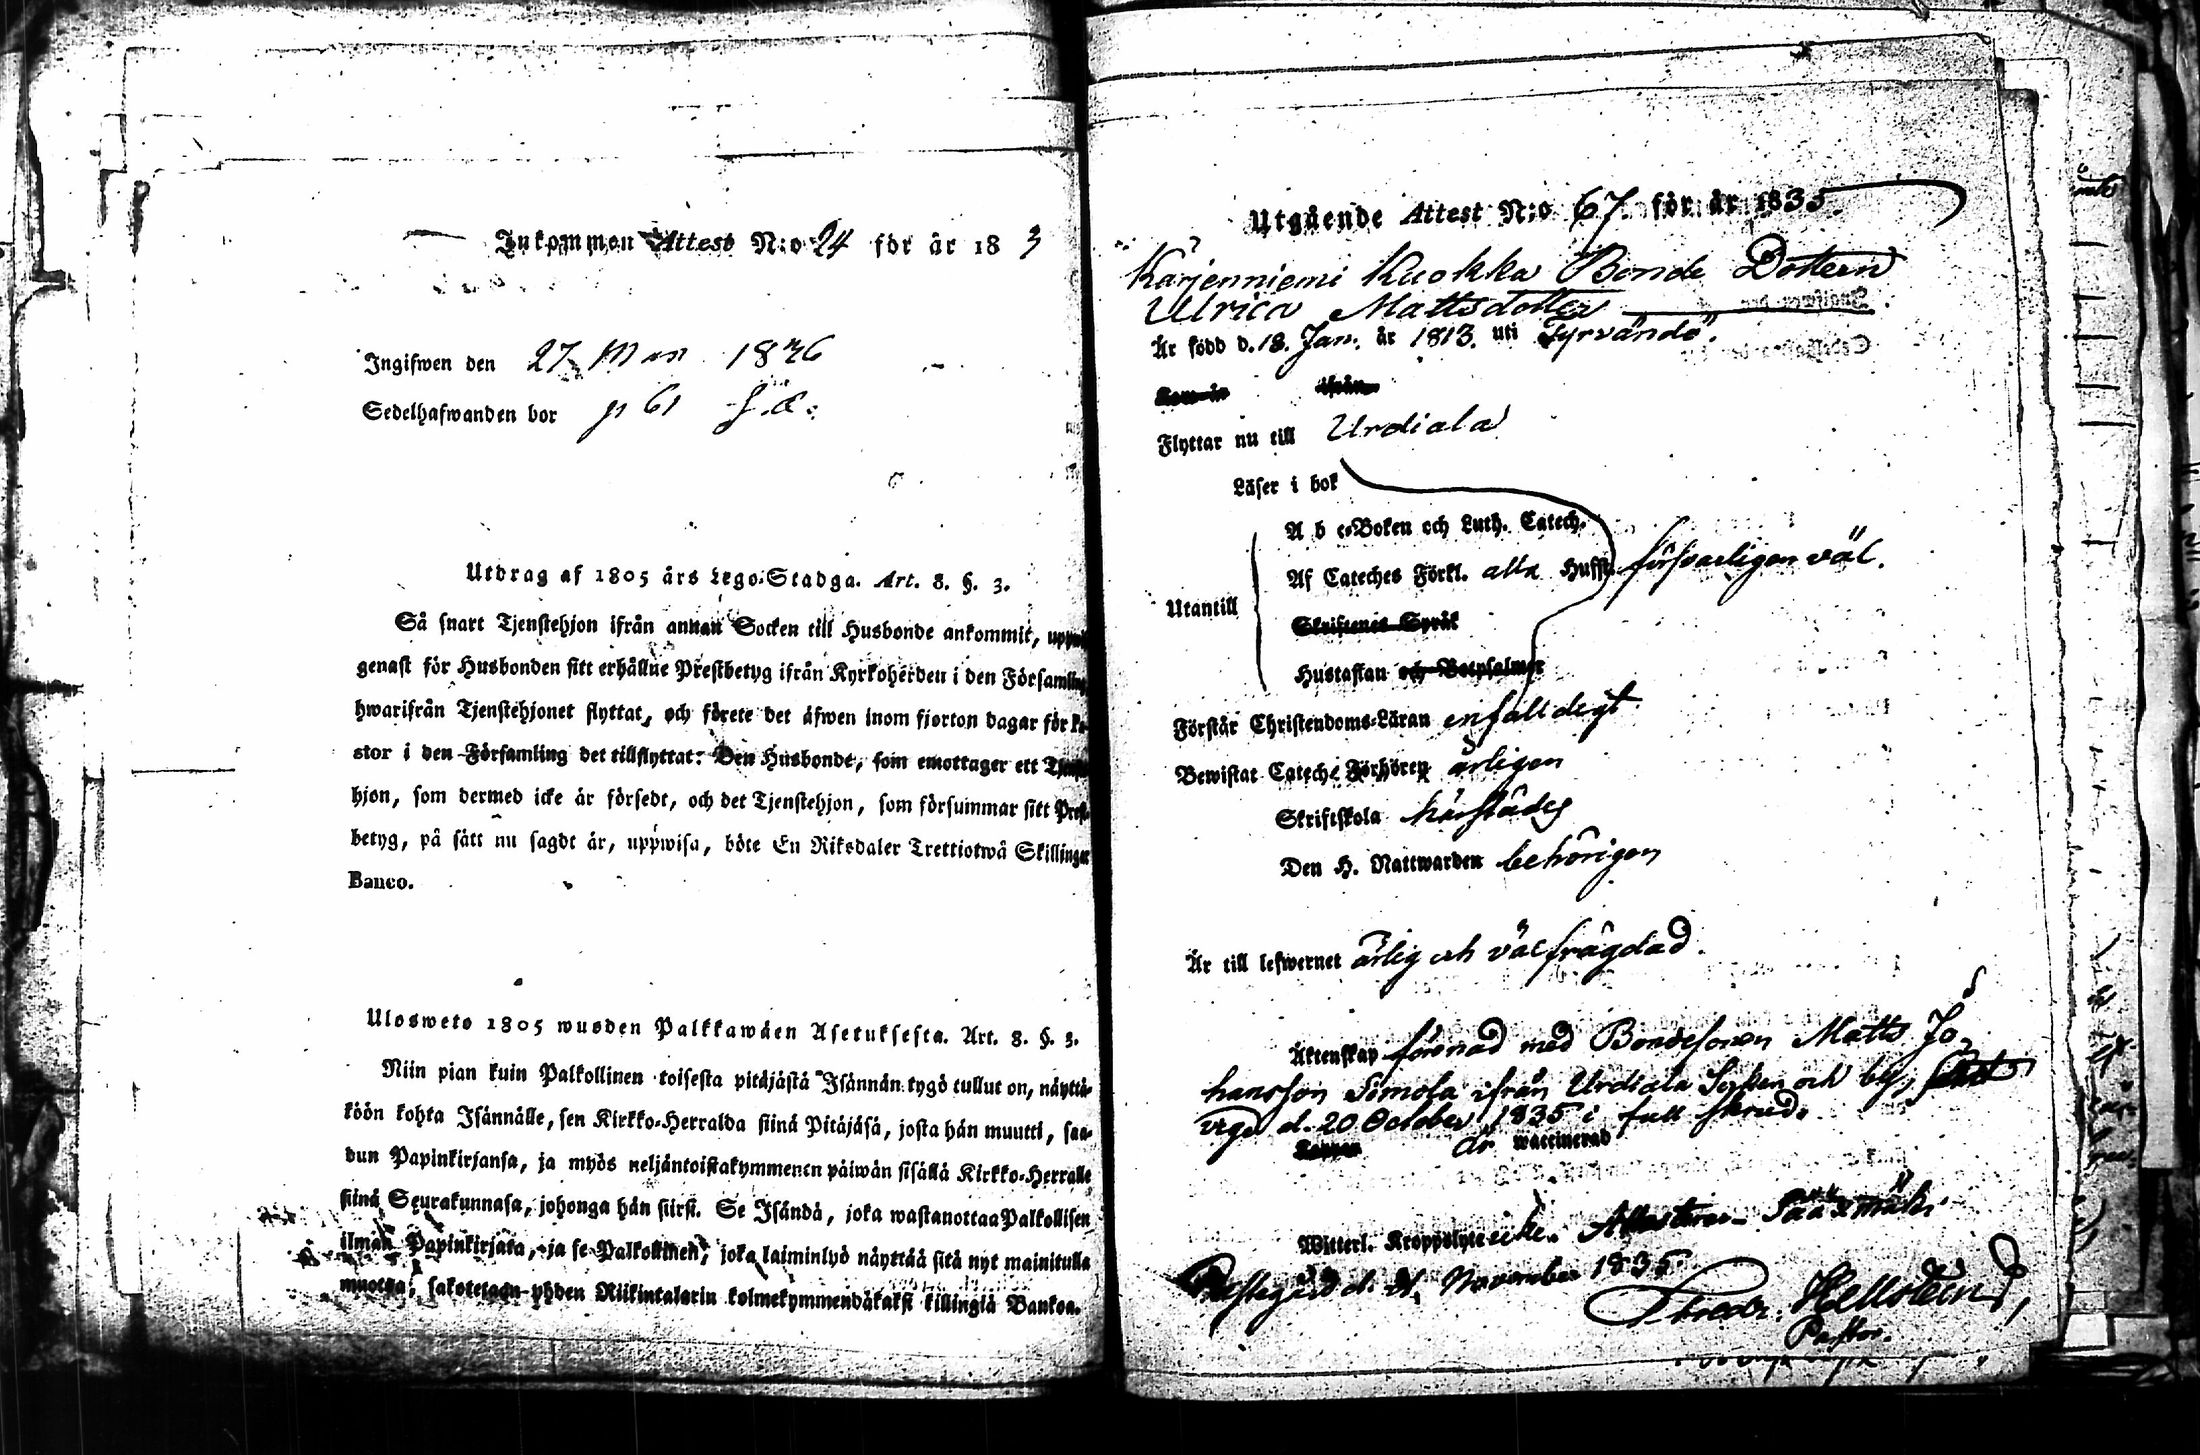 Inkommen Attest N:o 24 för år 183
Ingifwen den 27 1836
Sedelhafwanden bor p 61
Utdrag af 1805 års Lego-Stadga. Art. 8. §. 3.
Så snart Tjenstehjon ifrån annan Socken till Husbonde ankommit,
genast för Husbonden sitt erhållne Prestbetyg ifrån Kyrkoherden i den Församling
hwarifrån Tjenstehjonet flyttat, och förete det äfwen inom fjorton dagar för
stor i den Församling det tillflyttat. Den Husbonde, som emottager ett
hjon, som dermed icke är försedt, och det Tjenstehjon, som försummar sitt Prest-
betyg, på sätt nu sagdt är, uppwisa, böte En Riksdaler Trettiotwå Skillingar
Banco.
Ulosweto 1805 wuoden Palkkawäen Asetuksesta. Art. 8. §. 3.
Niin pian kuin Palkollinen toisesta pitäjästä Isännän tygö tullut on, näyttä-
köön kohta Isännälle, sen Kirkko-Herralda siinä Pitäjäsä, josta hän muutti, saa-
dun Papinkirjansa, ja myös neljäntoistakymmenen päiwän sisällä Kirkko-Herralle
siinä Seurakunnasa, johonga hän siirsi. Se Isändä, joka wastanottaa Palkollisen
ilman Papinkirjata, ja se Palkollinen, joka laiminlyö näyttää sitä nyt mainitulla
muotoa, sakotetaan yhden Riikintalarin kolmekymmendäkaksi killingiä Bankoa.
Utgående Attest N:o 67 för år 1835.
Karjenniemi Kuokka Bonde Dottern
Ulrica Mattsdotter
Är född d. 18. Jan. år 1813. uti Tyrvändö.
Kom år ifrån
Flyttar nu till Urdiala
Läser i bok
A b c-Boken och Luth. Catech.
Af Cateches Förkl. alla Hufst. försvarligen väl.
Utantill
Skriftenes Språk
Hustaflan och Botpsalmer
Förstår Christendoms-Läran enfalldigt
Bewistat Cateche Förhören årligen
Skriftskola härstädes
Den H. Nattwarden behörigen
Är till lefwernet ärlig och välfrägdad.
Äktenskap förenad med Bondesonen Matts Jo-
hansson Simola ifrån Urdiala Socken och bef
vigd d. 20 October 1835 i full skrud.
Koppor är waccinerad
Witterl. Kroppslyte icke. Attesterar Sääxmäki
Prestegård d. November 1835.
Fredr. Hellsteen,
Pastor.